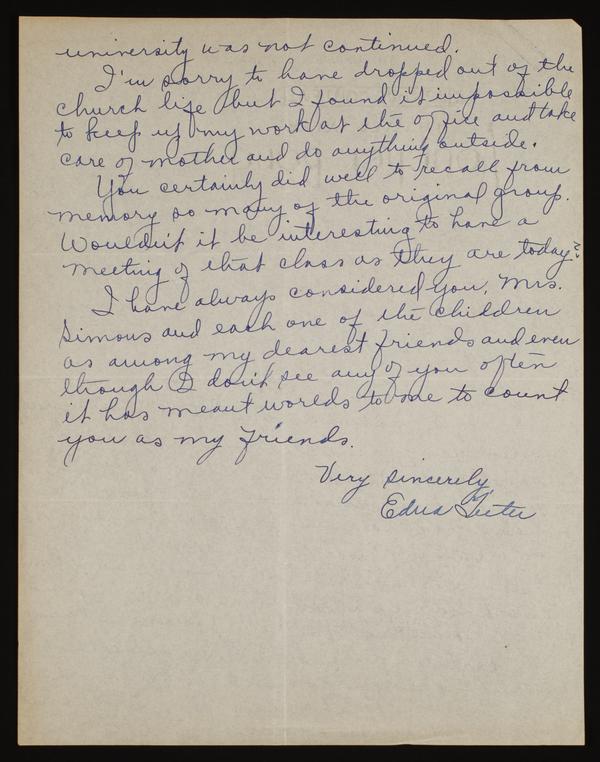 university was not continued.
I'm sorry to have dropped out of the
church life but I found it impossible
to keep up my work at the office and take
care of mother and do anything outside.
You certainly did well to recall from
memory so many of the original group.
Wouldn't it be interesting to have a
meeting of that class as they are today?
I have always considered you, Mrs.
Simons and each one of the children
as among my dearest friends and even
though I don't see any of you often
it has meant worlds to me to count
you as my friends.
Very sincerely
Edna Teeter